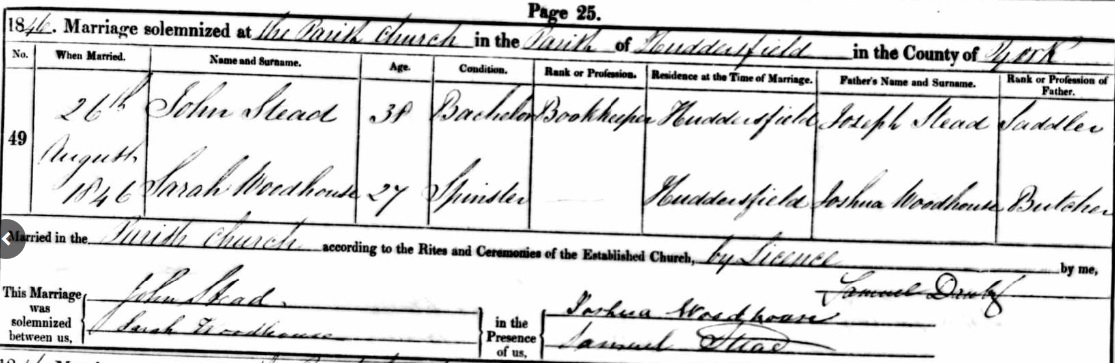 Page 25.
1846. Marriage solemnized at the Parish Church in the Parish of Huddersfield in the County of York
No. When Married. Name and Surname. Age. Condition. Rank or Profession. Residence at the Time of Marriage. Father's Name and Surname. Rank or Profession of Father.
49 26th August 1846 John Stead 38 Bachelor Bookkeeper Huddersfield Joseph Stead Saddler
Sarah Woodhouse 27 Spinster Huddersfield Joshua Woodhouse Butcher
Married in the Parish Church according to the Rites and Ceremonies of the Established Church, by Licence by me,
Samuel
This Marriage was solemnized between us, John Stead Sarah Woodhouse in the Presence of us, Joshua Woodhouse Samuel Stead